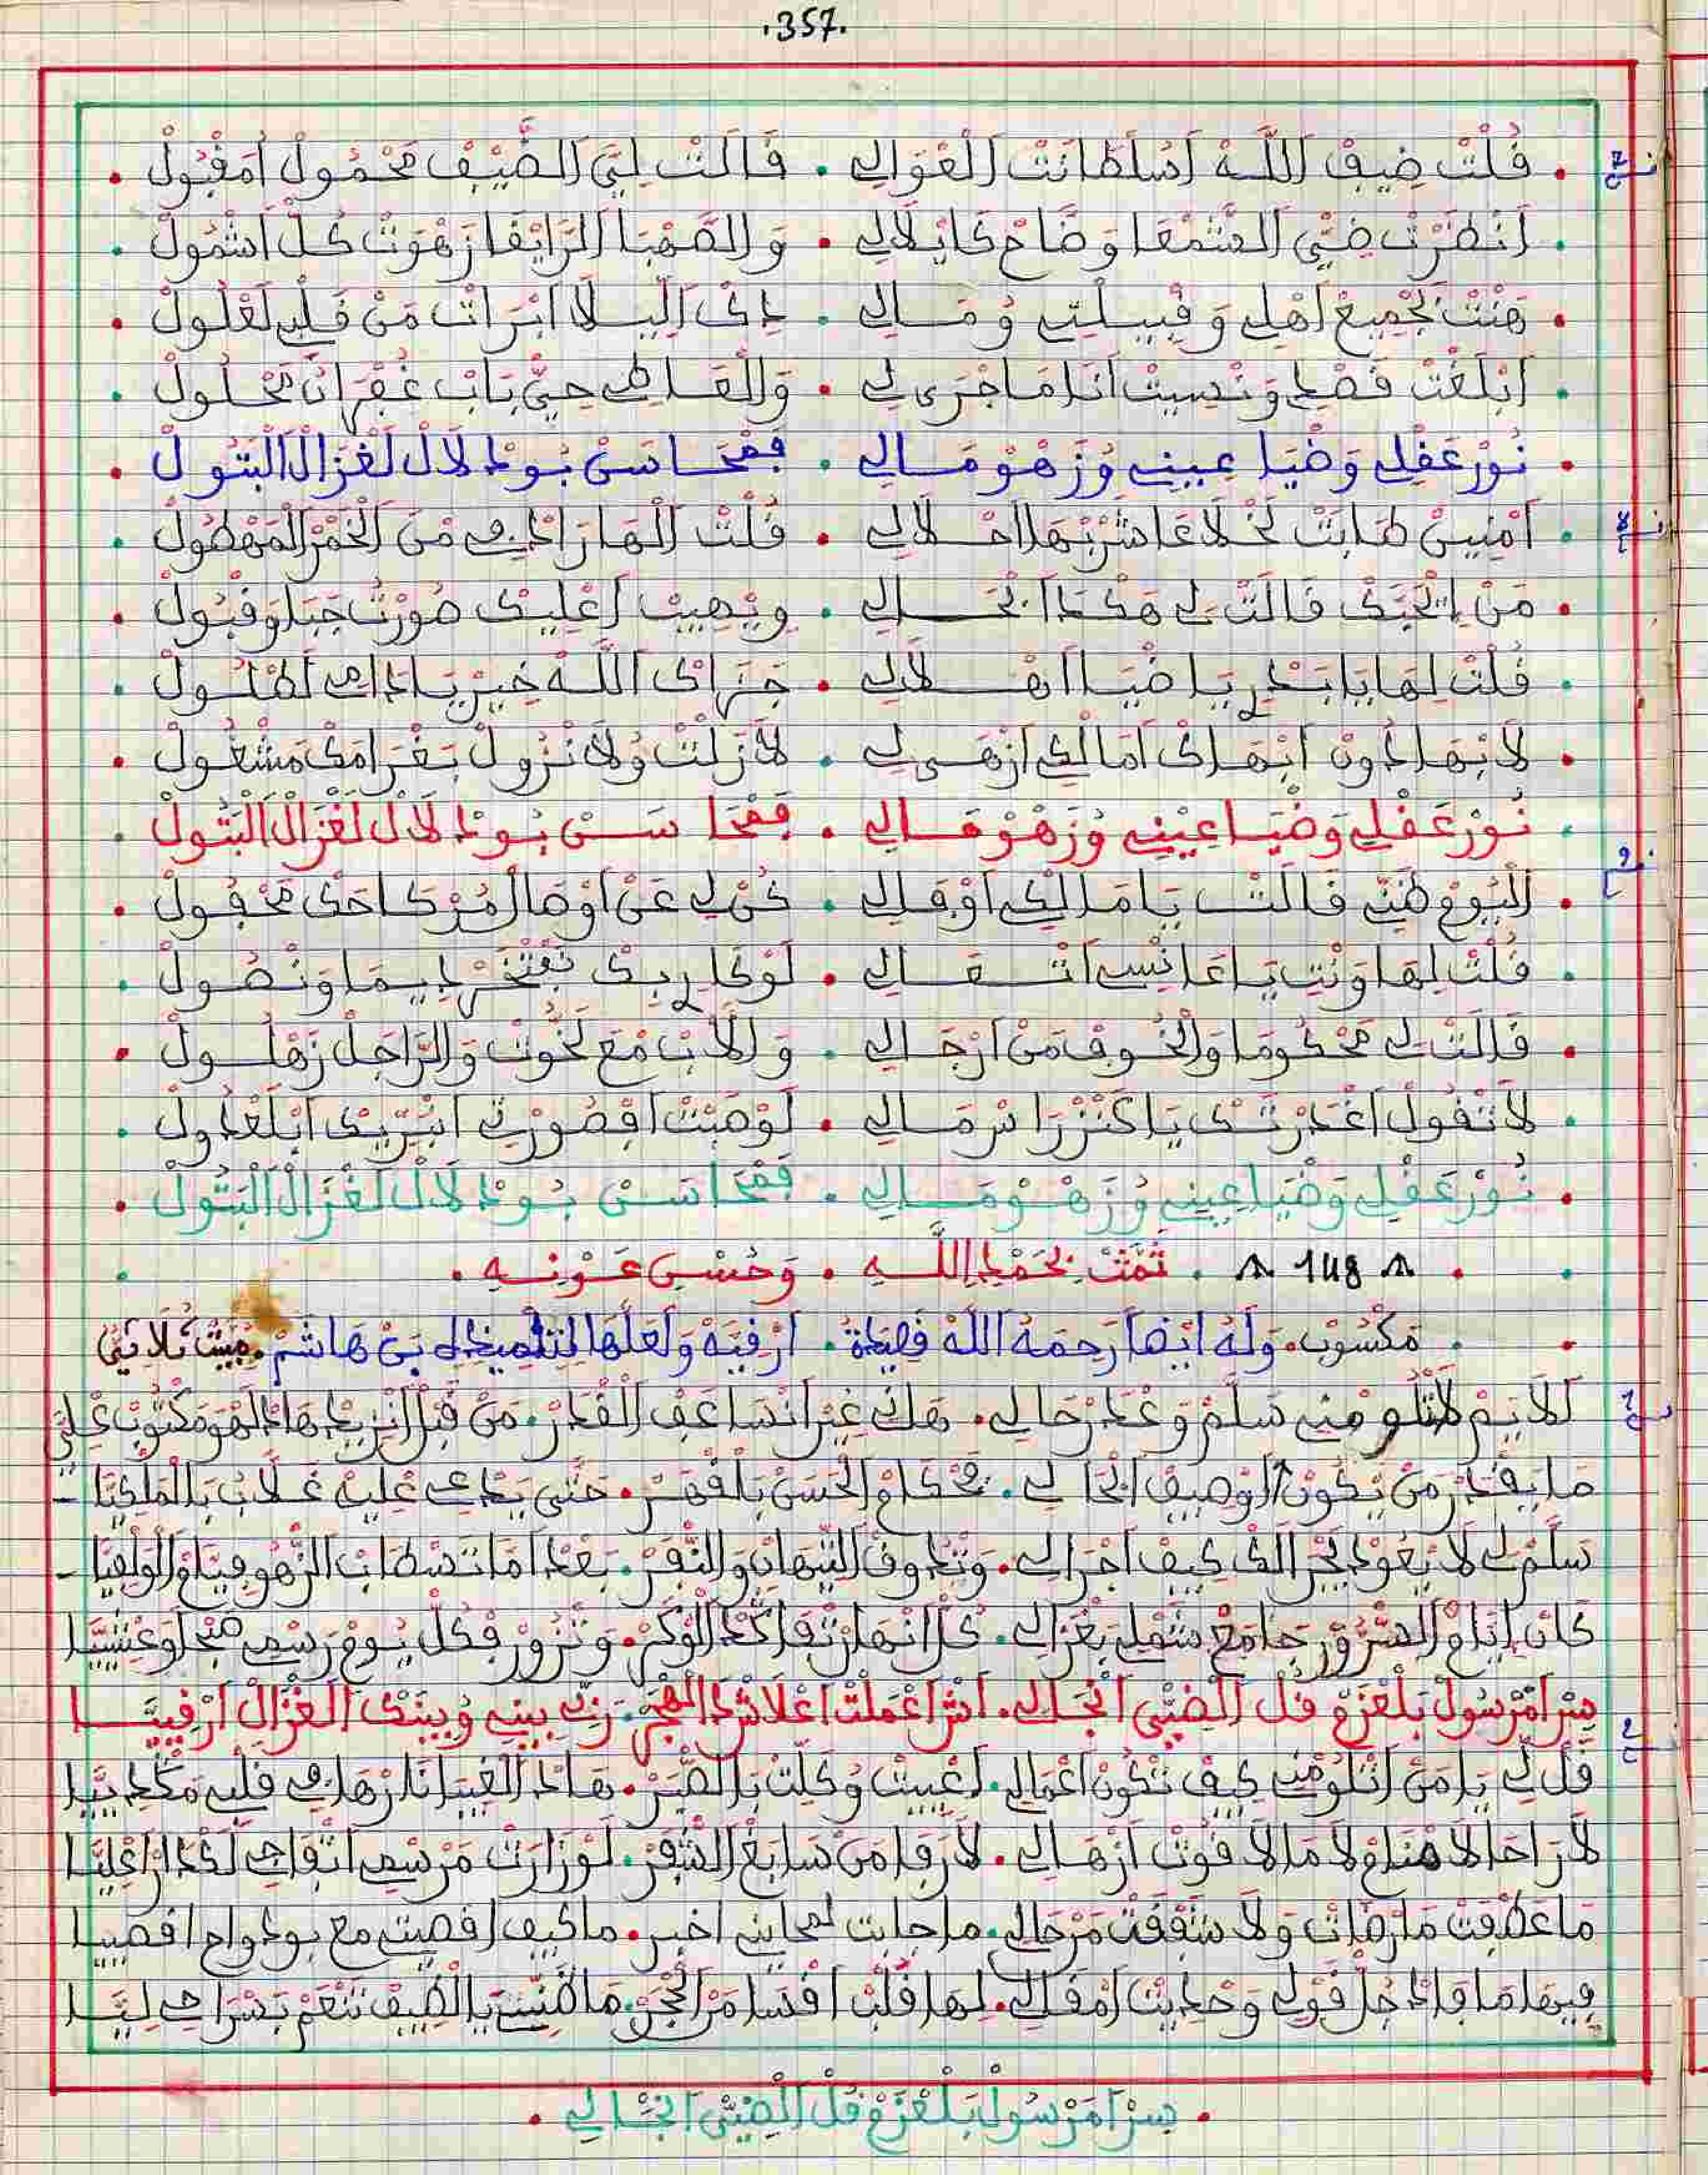 .357.
فُلْتْ ضِيفْ اللَّهْ اَسُلْطَانْتْ الْغْوَالِي . قَالَتْ لِيَّ الضَّيْفْ مَحْمُولْ اَمَقْبُولْ
اَنْظَرْتْ ضَيّْ الشَّمْعَا وَضَّاحْ كَايْلَالِي . وَالصَّهْبَا الرَّايْقَا زَهْوَتْ كُلّْ اَشْمُولْ
هَنْتْ بَجْمِيعْ اَهْلِي وَقْبِيلْتِي وُمَالِي . ذِيكْ اللِّيلَا ابْرَاتْ مَنْ قَلْبِي لَعْلُولْ
اَبْلَغْتْ قَصْدِي وَنْسِيتْ اَنَا مَا جْرَى لِي . وَالْعَاطِي حِيّْ بَابْ غُفْرَانُ مَحْلُولْ
نُورْ عَقْلِي وَضْيَا عِينِي وُزَهْوْ مَالِي . فَمْحَاسَنْ بُودْلَالْ لَغْزَالْ الْبَتُولْ
اَمْنِينْ طَابَتْ لَخْلَاعَا شَرْبَهَا احْلَالِي . قُلْتْ الْهَا زَادْنِي مَنْ الْخَمْرْ الْمَهْطُولْ
مَنْ اِيْحَبَّكْ قَالَتْ لِي هَكْدَا ابْحَالِي . وِيْصِيبْ اَعْلِيكْ صُورْتْ جَبَلْ وَقْبُولْ
قُلْتْ لِهَا يَا بَدْرِي يَا ضْيَا اَهْلَالِي . جَزَاكْ اللَّهْ خِيرْ يَا دَامِي لَطْلُولْ
لَا بْهَا دُونْ ابْهَاكْ اَمَالْكِي ازْهَى لِي . لَا زَلْتْ وُلَا نْزُولْ بَغْرَامَكْ مَشْغُولْ
نُورْ عَقْلِي وَضْيَا عِينِي وُزَهْوْ مَالِي . فَمْحَاسَنْ بُودْلَالْ لَغْزَالْ الْبَتُولْ
الْيُومْ ظَنِّي قَالَتْ يَا مَالْكِي اَوْفَى لِي . كُنْ لِي عَنْ اَوْصَالْ مُرْ كَاحَكْ مَحْفُولْ
قُلْتْ لِهَا وَنْتِ يَا عَانْسْ اَتْقَالِي . لَوْكَارِي بِكْ نَفْتْخَرْ دِيمَا وَنْصُولْ
قَالَتْ لِي مَحْكُومَا وَالْخُوفْ مَنْ اَرْجَالِي . وَالَابْ مْعَ لَخُّوتْ وَالرَّاجَلْ زَهْلُولْ
لَا تْقُولْ اَغْدَرْتَكْ يَا كَنْزْ رَاسْ مَالِي . لَوْ صَبْتْ اَقْصُورْتِي اَنْبَرِّيكْ اَبْلَعْدُولْ
نُورْ عَقْلِي وَضْيَا عِينِي وُزَهْوْ مَالِي . فَمْحَاسَنْ بُودْلَالْ لَغْزَالْ الْبَتُولْ
148 . تَمَّتْ بِحَمْدِ اللَّهِ . وَحُسْنِ عَوْنِهِ .
مَكْسُوبْ. وَلَهُ اَيْضاً رَحِمَهُ اللَّهْ قَصِيدَةْ. اَرْفِيَهْ وَلَعَلَّهَا لِتِلْمِيذِهِ بَنْ هَاشَمْ. مَبِيْتْ ثُلَاثِي
اَلَايَمْ لَاتْلُومْنِي سَلَّمْ وَعْدَرْ حَالِي. هَاكْ غِيرْ اَنْسَاعَفْ الْقْدَرْ. مَنْ قْبَلْ اَنْزِيدْ هَادَ الْهَوْ مَكْتُوبْ عْلِيَّ
مَا يَقْدَرْ مَنْ يْكُونْ الْوْصِيفْ ابْحَالِي. بَحْكَامْ الْحَسَنْ بَلْقْهَرْ. حَتَّى يَدْعِي عْلِيهْ غَلَّابْ بَالْمَلْكِيَّا
سَلَّمْ لِي لَا يْعُودْ يَجْرَالَكْ كِيفْ اجْرَالِي. وَتْدُوفْ التَّيْهَانْ وَالنَّفَرْ. بَعْدْ اَمَا تَسْطَابْ الزَّهْوْ فِيَّامْ الْوَلْفِيَّا
كَانْ اِيَّامْ السْرُورْ جَامَعْ شَمْلِي بَغْزَالِي. كُلّْ انْهَارْ تَقْرَا لْكَدْ الْوْكَرْ. وَتْزُورْ فْكُلّْ يُومْ رَسْمِي صَبْحَا وَعْشِيَّا
سِرْ اَمَرْسُولْ بَلْعْزَمْ قُلْ الضَيّْ انْجَالِي. اَشْ اَعْمَلْتْ اعْلَاشْ دَ الْهْجَرْ. رَبِّي بِينِي وُبِينَكْ الْغْزَالْ اَرْفِيَّا
قُلْ لِي يَا مَنْ اَتْلُومْنِي كِيفْ تْكُونْ اَعْمَالِي. اَعْيِيتْ وُكَلَّتْ بَالصّْبَرْ. هَادَ الْغِيبَا نَارْهَا فِي قَلْبِي مَكْدِيَّا
لَا رَاحَا لَا هْنَا وُلَا مَالَا فُوتْ اَزْهَالِي. لَا رَقَا مَنْ سَابَغْ الشّْفَرْ. لَوْ زَارَتْ مَرْسْمِي اَتْفَاجِي لَكْدَارْ اَعْلِيَّا
مَا عَطْفَتْ مَا رْضَاتْ وَلَا شَفْقَتْ مَنْ حَالِي. مَا جَابَتْ لَمْحَايْنِي اَخْبَرْ. مَا كِيفْ اقْصِيتِي مْعَ بُودْوَاحْ اقْصِيَّا
فِيهَا مَا فَادْ جُلّْ قَوْلِي وَحْدِيتْ اَمْقَالِي. لِهَا قَلْبْ اَقْسَا مَنْ الْحْجَرْ. مَا ظَنِّيتْ يَا الضِيفْ تَنْعَمْ بَسْرَاحِي لِيَّا
سِرْ اَمَرْسُولْ بَلْعْزَمْ قُلْ الضَيّْ انْجَالِي .